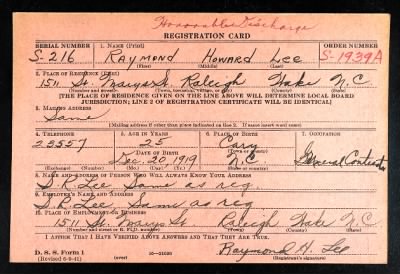 Honorable Discharge
REGISTRATION CARD
SERIAL NUMBER 1. NAME (Print) ORDER NUMBER
S-216 RAYMOND HOWARD LEE S-1939A
(First) (Middle) (Last)
2. PLACE OF RESIDENCE (Print)
1511 St. Marys St. Raleigh Wake N.C.
(Number and street) (Town, township, village, or city) (County) (State)
[THE PLACE OF RESIDENCE GIVEN ON THE LINE ABOVE WILL DETERMINE LOCAL BOARD
JURISDICTION; LINE 2 OF REGISTRATION CERTIFICATE WILL BE IDENTICAL]
3. MAILING ADDRESS
Same
[Mailing address if other than place indicated on line 2. If same insert word same]
4. TELEPHONE 5. AGE IN YEARS 6. PLACE OF BIRTH 7. OCCUPATION
23557 25 Cary
DATE OF BIRTH (Town or county)
Dec. 20, 1919 N.C. General
(Exchange) (Number) (Mo.) (Day) (Yr.) (State or country)
8. NAME AND ADDRESS OF PERSON WHO WILL ALWAYS KNOW YOUR ADDRESS
S R Lee Same as reg.
9. EMPLOYER'S NAME AND ADDRESS
S R Lee Same as reg
10. PLACE OF EMPLOYMENT OR BUSINESS
1511 St. Marys St. Raleigh Wake N C
(Number and street or R. F. D. number) (Town) (County) (State)
I AFFIRM THAT I HAVE VERIFIED ABOVE ANSWERS AND THAT THEY ARE TRUE.
Raymond H. Lee
D. S. S. Form 1 (over) (Registrant's signature)
(Revised 6-9-41)